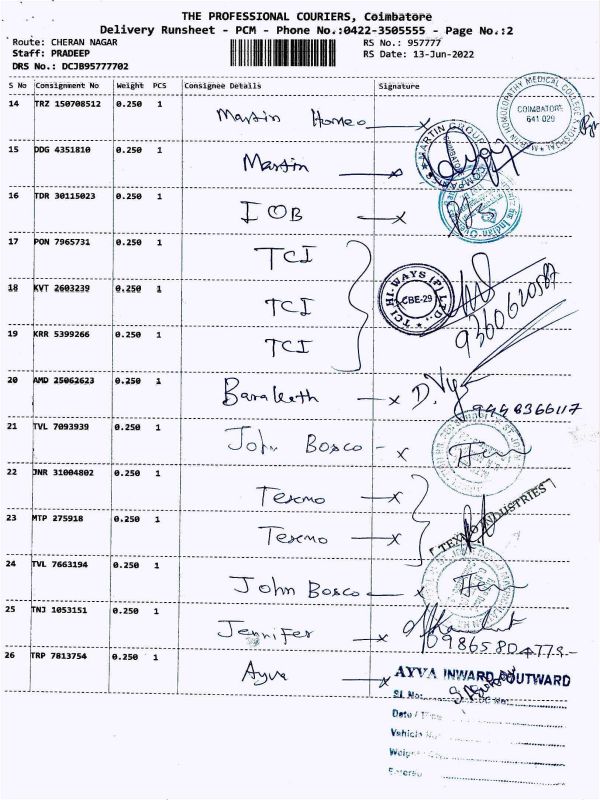 THE PROFESSIONAL COURIERS, Coimbatore
Delivery Runsheet - PCM - Phone No.:0422-3505555 - Page No.:2
Route: CHERAN NAGAR RS No.: 957777
Staff: PRADEEP RS Date: 13-Jun-2022
DRS No.: DCJB95777702
S No Consignment No Weight PCS Consignee Details Signature
14 TRZ 150708512 0.250 1 Martin Homeo
HOMOEOPATHY MEDICAL COLLEGE
COIMBATORE
641 029
15 DDG 4351810 0.250 1 Martin
MARTIN GROUP
16 TDR 30115023 0.250 1 IOB
17 PON 7965731 0.250 1 TCI
18 KVT 2603239 0.250 1 TCI
TCI HI-WAYS (P) LTD.,
CBE-29
19 KRR 5399266 0.250 1 TCI
9360620587
20 AMD 25062623 0.250 1 D.
9448366117
21 TVL 7093939 0.250 1 John Bosco
22 JNR 31004802 0.250 1 Texmo
23 MTP 275918 0.250 1 Texmo
INDUSTRIES
24 TVL 7663194 0.250 1 John Bosco
25 TNJ 1053151 0.250 1 Jennifer
26 TRP 7813754 0.250 1 Ayva
AYVA INWARD OUTWARD
Sl. No:
Date / Time
Vehicle No
Entered